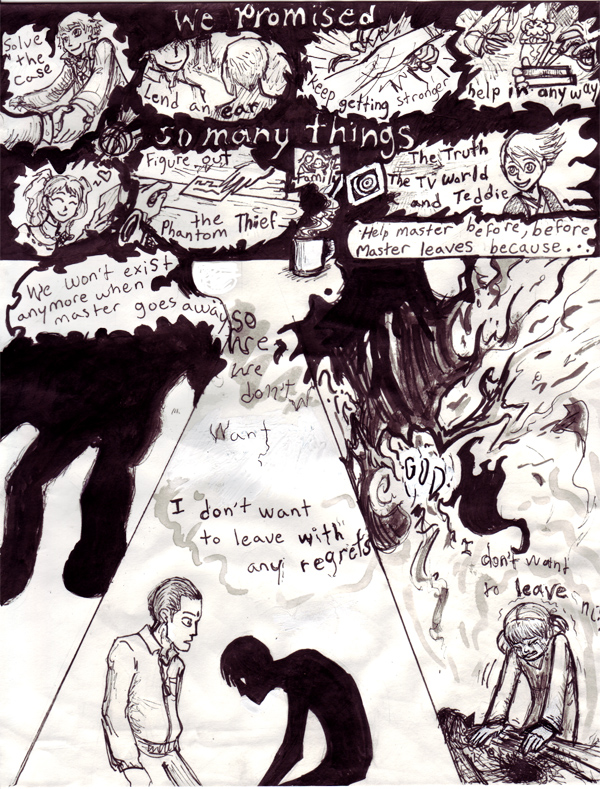 We Promised
Solve
the
case
Lend an ear
keep getting stronger
help in any way
so many things
Figure out
the
Phantom Thief
Family
The Truth
The TV World
and Teddie
Help master before, before
Master leaves because...
We won't exist
anymore when
master goes away
so
we
we
don't w
want
I don't want
to leave with
any regrets
GOD
I don't want
to leave